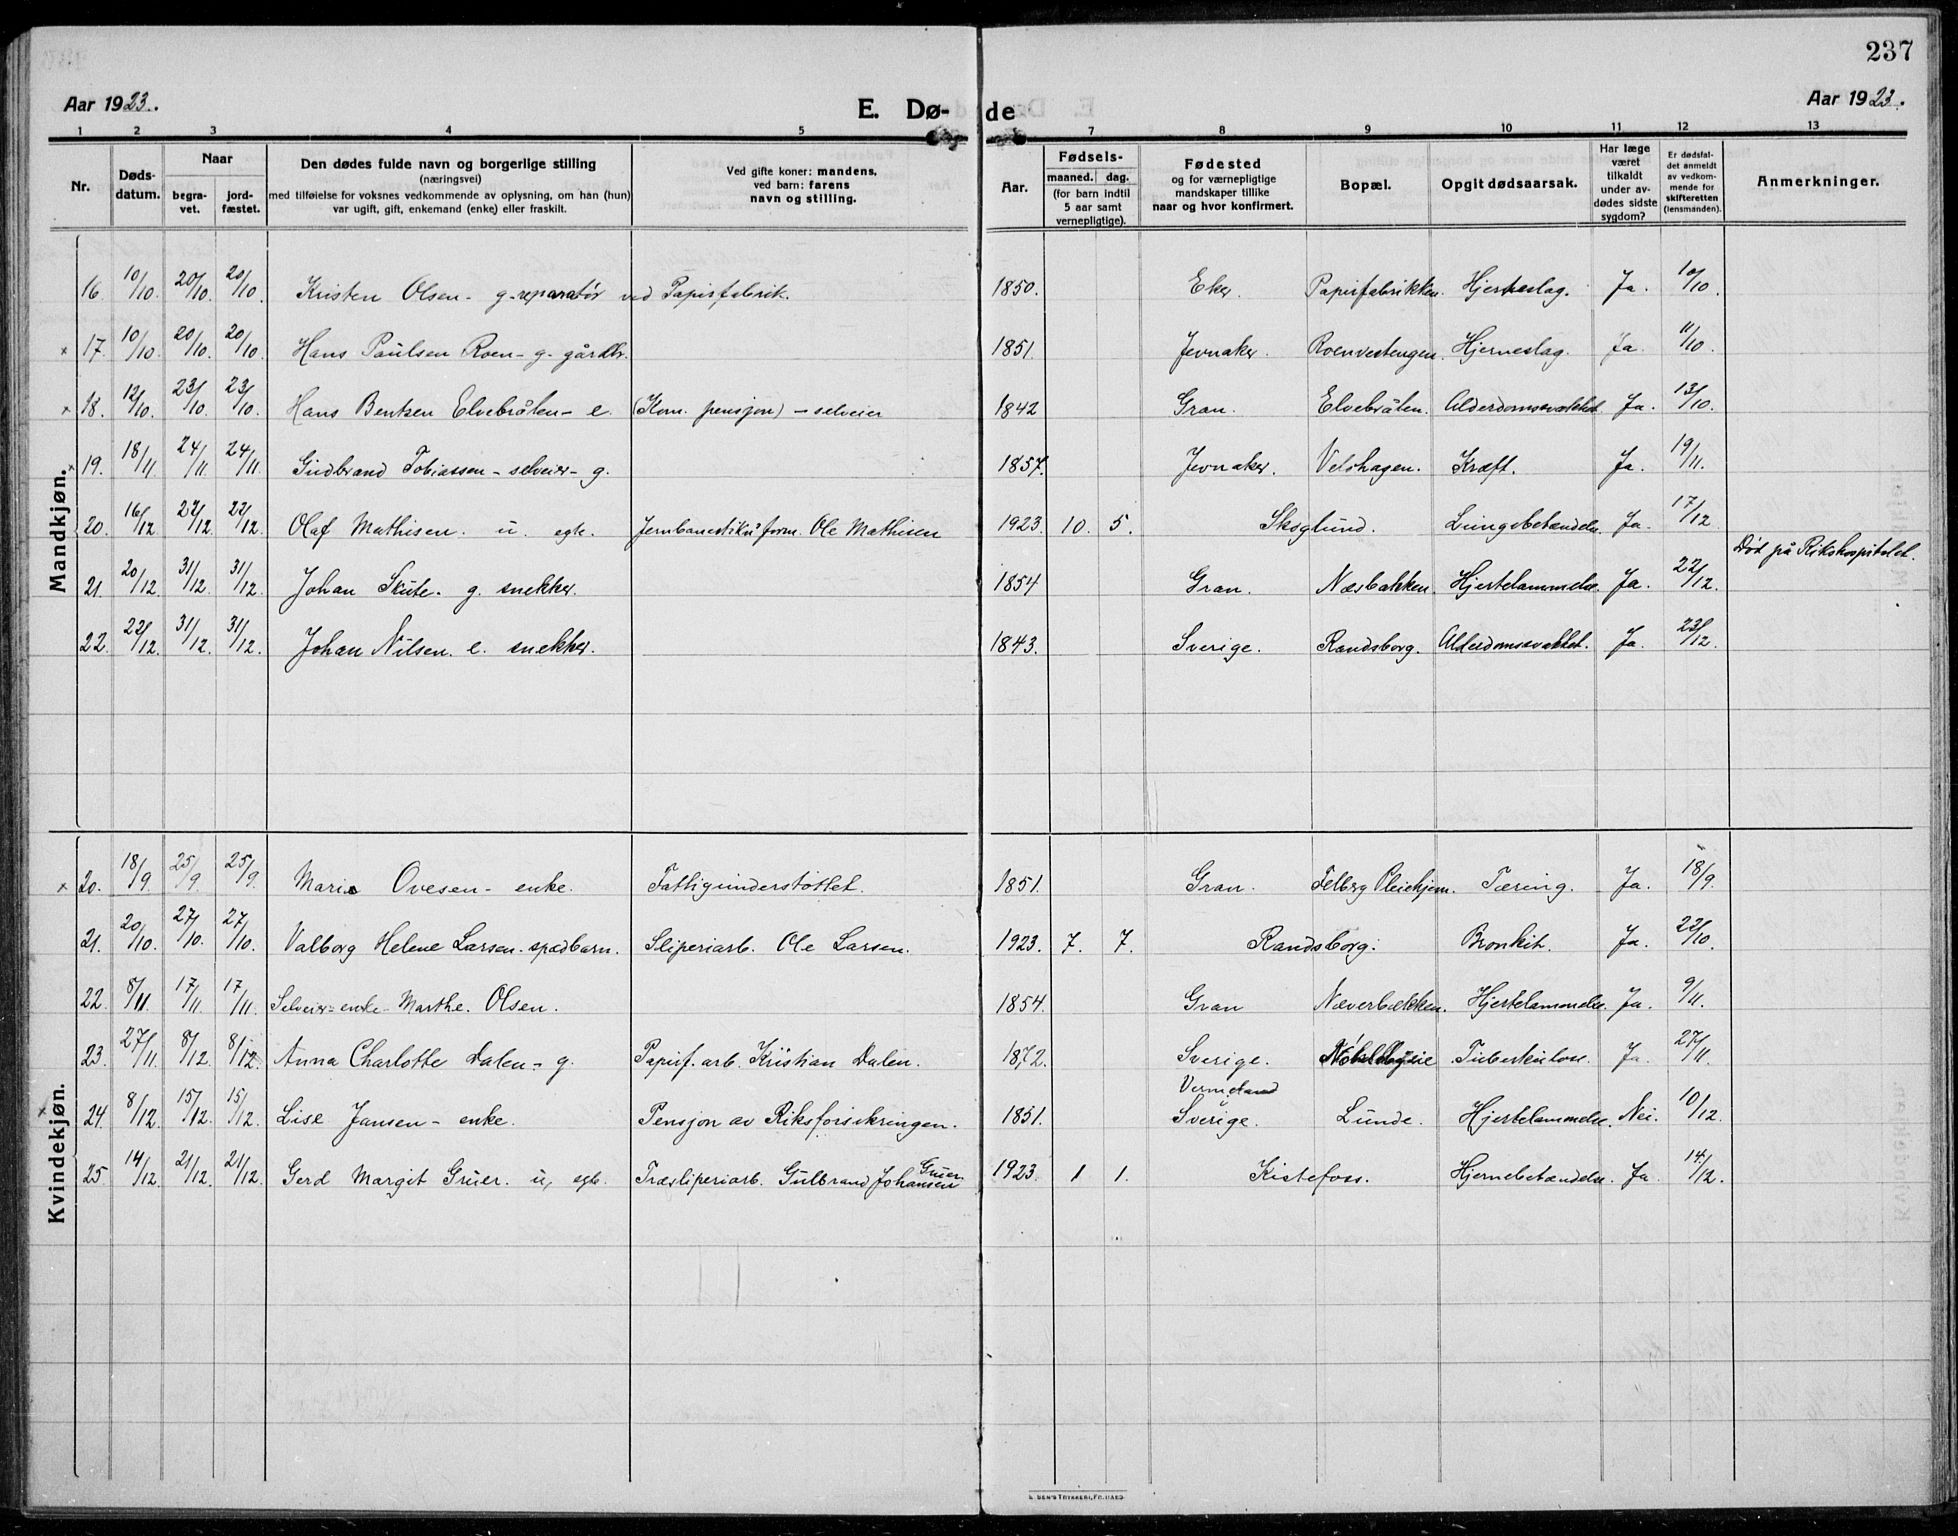 237
Aar 1923.
E. Dø- de
Aar 1923.
1 2 3 4 5 7 8 9 10 11 12 13
Nr.
Døds-
datum.
Naar
begra-
vet.
jord-
fæstet.
Den dødes fulde navn og borgerlige stilling
(næringsvei)
med tilføielse for voksnes vedkommende av oplysning, om han (hun)
var ugift, gift, enkemand (enke) eller fraskilt.
Ved gifte koner: mandens,
ved barn: farens
navn og stilling.
Aar.
Fødsels-
maaned. dag.
(for barn indtil
5 aar samt
vernepligtige).
Fødested
og for værnepligtige
mandskaper tillike
naar og hvor konfirmert.
Bopæl.
Opgit dødsaarsak.
Har læge
været
tilkaldt
under av-
dødes sidste
sygdom?
Er dødsfal-
det anmeldt
av vedkom-
mende for
skifteretten
(lensmanden).
Anmerkninger.
Mandkjøn.
16. 10/10. 20/10. 20/10. Kristen Olsen - g. reparatør ved Papirfabrik. 1850. Eker. Papirfabrikken. Hjerneslag. Ja. 10/10.
x 17. 10/10. 20/10. 20/10. Hans Paulsen Roen - g. gårdbr. 1851. Jevnaker. Roenvestengen. Hjerneslag. Ja. 11/10.
x 18. 12/10. 23/10. 23/10. Hans Bentsen Elvebråten - e. (Kom. pensjon) - selveier 1842 Gran. Elvebråten. Alderdomssvækket Ja. 13/10.
x 19. 18/11. 24/11. 24/11. Gudbrand Tobiassen - selveier - g. 1857. Jevnaker. Velshagen. Kræft. Ja. 19/11.
20. 16/12 22/12. 22/12. Olaf Mathisen. u. egte. Jernbanestiku form. Ole Mathisen 1923. 10. 5. Skoglund. Lungebetændelse. Ja. 17/12
Død på Rikshospitalet.
21. 20/12. 31/12. 31/12. Johan Skute. g. snekker. 1854 Gran. Næsbakken. Hjertelammelse. Ja. 22/12.
22. 22/12. 31/12. 31/12. Johan Nilsen. e. snekker. 1843. Sverige. Randsborg. Alderdomssvækket. Ja. 23/12.
Kvindekjøn.
x 20. 18/9. 25/9. 25/9. Marie Ovesen - enke. Fattigunderstøttet. 1851. Gran. Felberg Pleiehjem. Tæring. Ja. 18/9.
21. 20/10. 27/10. 27/10. Valborg Helene Larsen - spædbarn. Sliperiarb. Ole Larsen. 1923. 7. 7. Randsborg. Bronkit. Ja. 22/10.
22. 8/11. 17/11. 17/11. Selveier-enke - Marthe Olsen. 1854. Gran Næverbækken. Hjertelammelse. Ja. 9/11.
23. 27/11. 8/12. 8/12. Anna Charlotte Dalen - g. Papirf. arb. Kristian Dalen. 1872. Sverige. Tuberkulose. Ja. 27/11.
x 24. 8/12. 15/12. 15/12. Lise Jansen - enke. Pensjon av Riksforsikringen. 1851. Vermeland
Sverige. Lunde. Hjertelammelse. Nei. 10/12.
25. 14/12. 21/12. 21/12. Gerd Margit Gruer. u, egte. Træsliperiarb. Gulbrand Johansen Gruer 1923. 1 1. Kistefoss. Hjernebetændelse. Ja. 14/12.